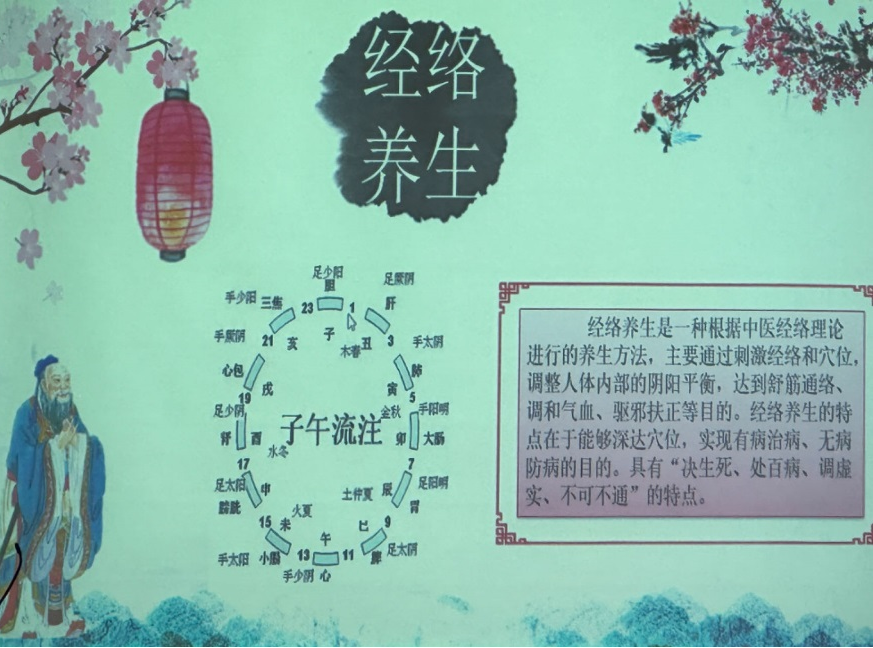 经络
养生
足少阳
胆
足厥阴
肝
手少阳
三焦
23
1
子
丑
木春
3
手太阴
肺
寅
5
手阳明
大肠
卯
金秋
7
足阳明
胃
辰
土仲夏
9
足太阴
脾
巳
11
午
手少阴 心
13
手太阳 小肠
未
火夏
15
足太阳
膀胱
申
17
足少阴
肾
酉
水冬
19
心包
戌
手厥阴
21
亥
子午流注
经络养生是一种根据中医经络理论
进行的养生方法，主要通过刺激经络和穴位，
调整人体内部的阴阳平衡，达到舒筋通络、
调和气血、驱邪扶正等目的。经络养生的特
点在于能够深达穴位，实现有病治病、无病
防病的目的。具有“决生死、处百病、调虚
实、不可不通”的特点。